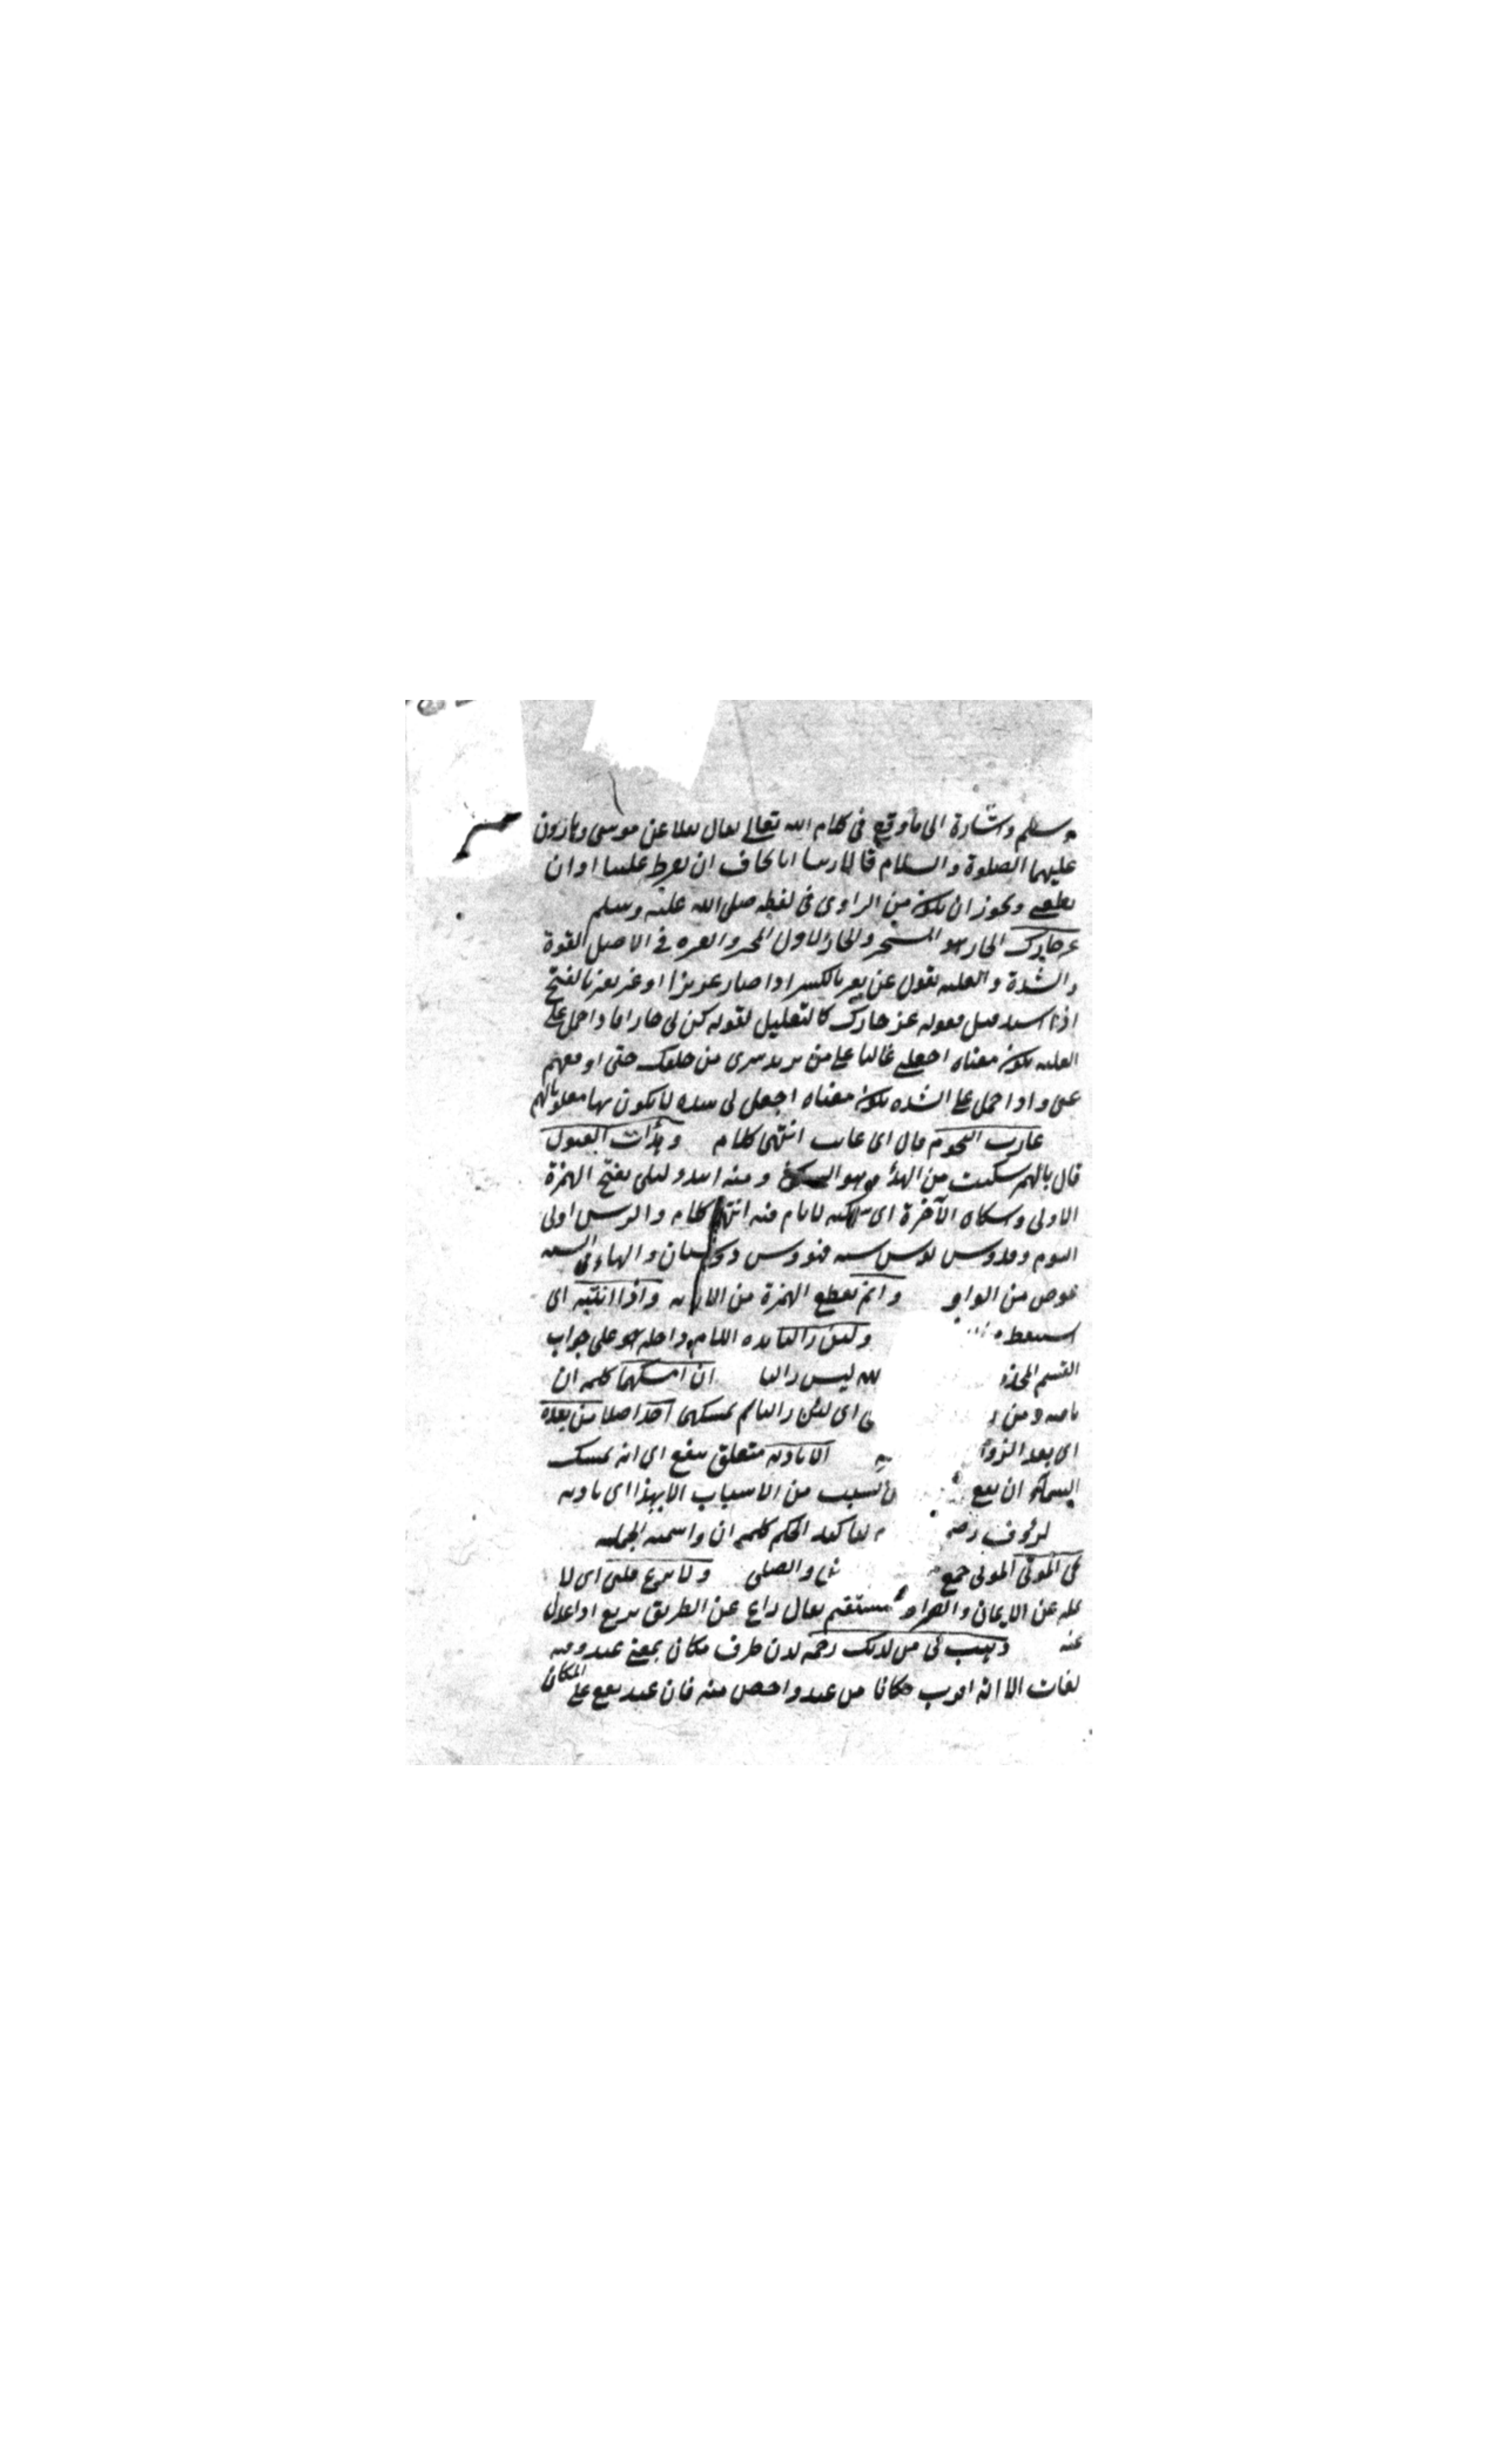 وسلم واشارة الى ما وقع فى كلام الله تعالى يقال نقلا عن موسى وهارون
عليهما الصلوة والسلام قالا ربنا اننا نخاف ان يفرط علينا او ان
يطغى ويجوز ان يكون من الراوى فى لفظه صلى الله عليه وسلم
عز جارك الجار هو المستجير والجار الاول المجير والعزة فى الاصل القوة
والشدة والغلبة يقول عز يعز بالكسر اذا صار عزيزا او عز يعز بالفتح
اذا اشتد قيل قوله عز جارك كالتعليل لقوله كن لى جارا فاذا حمل على
الغلبة يكون معناه اجعلنى غالبا على من يريد شرى من خلقك حتى ادفعهم
عنى واذا حمل على الشدة يكون معناه اجعل لى شدة لا يكون بها مغلوبا لهم
غارت النجوم قال اى غابت انتهى كلام وهدأت العيون
قال بالهمز سكنت من الهدء وهو السكون ومنه اهدء ليلى بفتح الهمزة
الاولى واسكان الآخرة اى سكنه لانام فيه انتهى كلام
اليوم وقد وسن يوسن سنة فهو وسن ووسنان والهاء فى السنة
عوض من الواو وانم بقطع الهمزة من الانامة واذا انتبه اى
استيقظ ولئن زالتا هذه اللام داخلة هو على جواب
القسم المحذ لله ليس زالتا ان امسكهما كلمة ان
نافية ومن اى لئن زالتا لم يمسكهما احد اصلا من بعده
اى بعد الزوا الا باذنه متعلق بتقع اى انه يمسك
السماء ان تقع بسبب من الاسباب الا بهذا اى باذنه
لرؤف رحيم لتاكيد الحكم كلمة ان واسمية الجملة
الموتى الموتى جمع ولا تزغ قلبى اى لا
تمله عن الايمان والصراط المستقيم يقال زاغ عن الطريق يزيغ اذا عدل
عنه وهب لى من لدنك رحمة لدن ظرف مكان بمعنى عند وفيه
لغات الا انه اقرب مكانا من عند واخص منه فان عند يقع على المكان